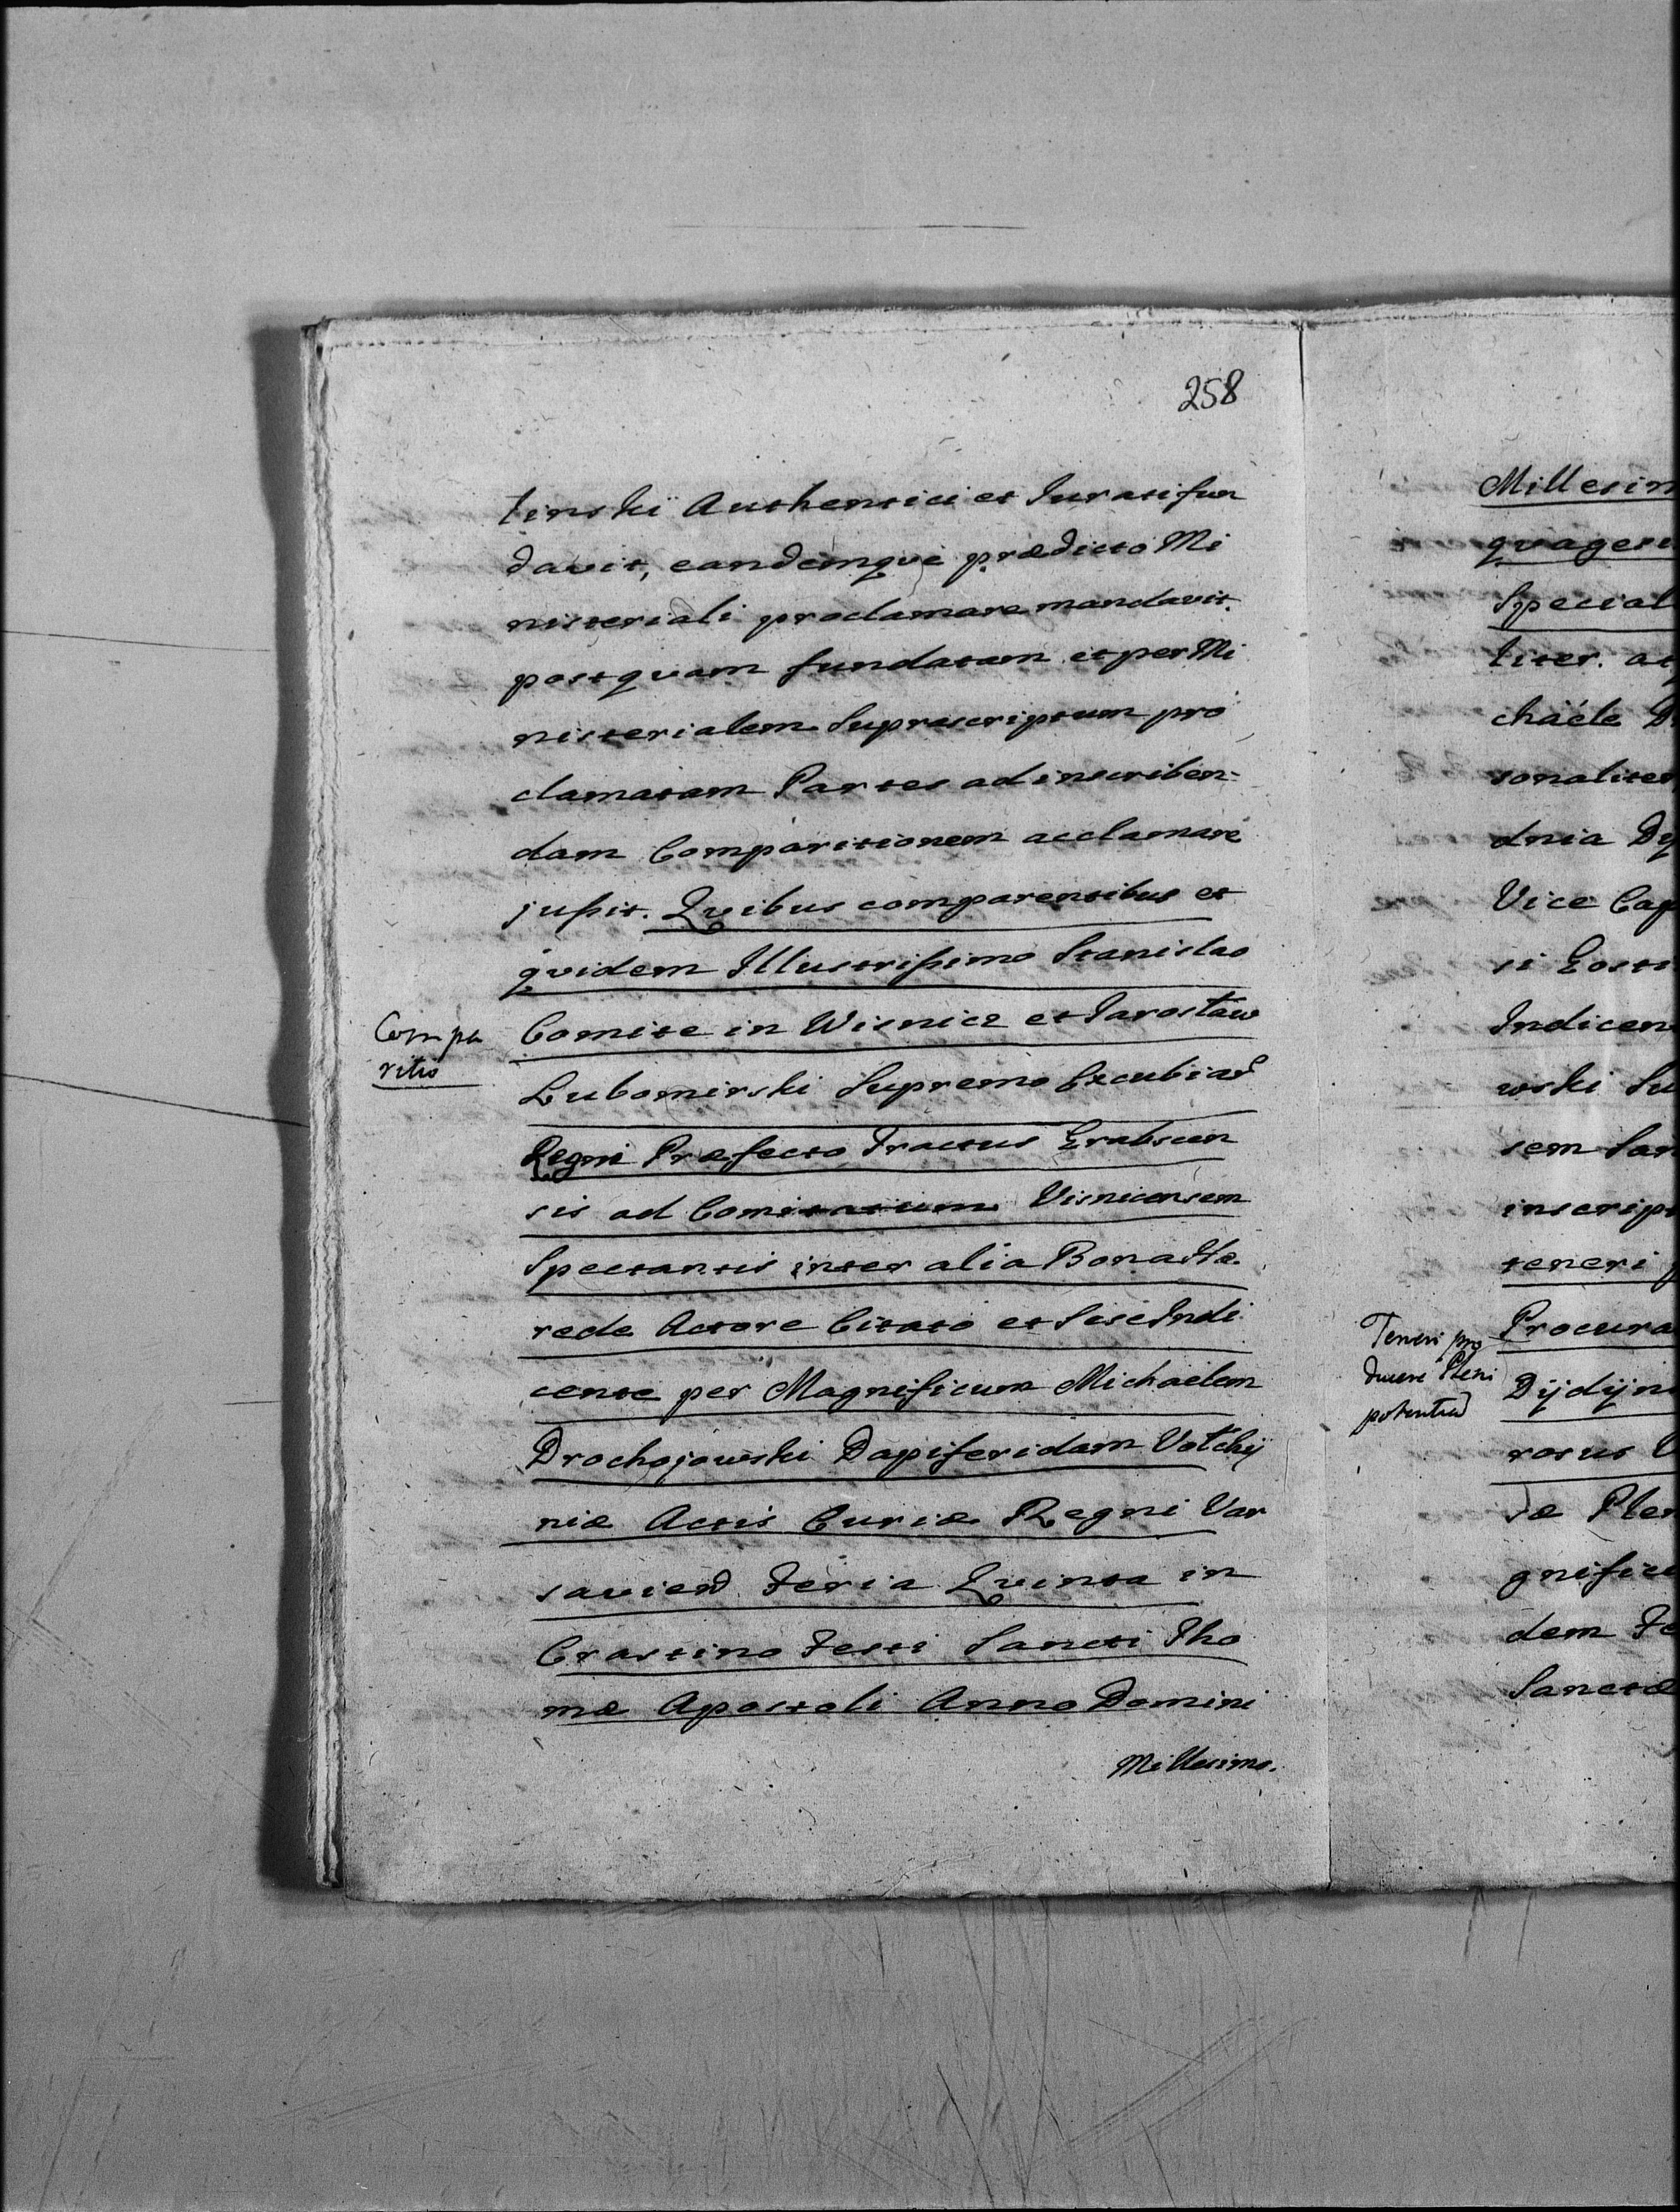 258
tinskii Authentici et Jurati fun
davit, eandemqve prædicto Mi
nisteriali proclamare mandavit.
postqvam fundatam et per Mi
nisterialem Suprascriptum pro
clamatam Partes ad inscriben-
dam Comparitionem acclamare
jussit. Qvibus comparentibus et
qvidem Illustrissimo Stanislao
Comite in Wisnicz et Jarosław
Compa
ritio
Lubomirski Supremo Excubiar
Regni Præfecto Tractus
sis ad Comitatum Visnicensem
Spectantis inter alia Bona Hæ
rede Actore Citato et Sese Indi
cente per Magnificum Michaelem
Drochojowski Dapiferidam
niæ Actis Curiæ Regni Var
savien Feria Qvinta in
Crastino Festi Sancti Tho
mæ Apostoli Anno Domini
Millesimo.
Millesim
qvagesi
Special
liter. at
chaele D
sonaliter
dnia Dy
Vice Cap
si Gosti
Indicen
wski Su
sem San
inscript
teneri p
Teneri pro
ducere Pleni
potentia
Procura
Dijdijn
rosus
dæ Plen
gnificu
dem Fe
Sanctæ